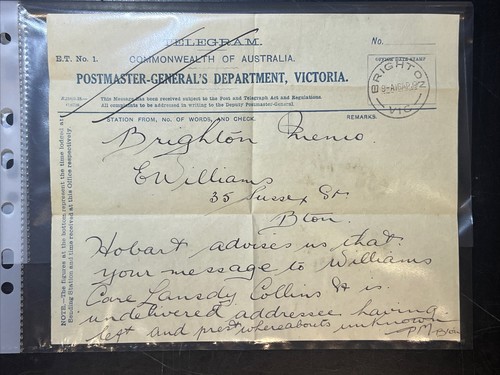 TELEGRAM.
B.T. No. 1. COMMONWEALTH OF AUSTRALIA. No.
POSTMASTER-GENERAL'S DEPARTMENT, VICTORIA.
OFFICE DATE STAMP
BRIGHTON
VIC
This Message has been received subject to the Post and Telegraph Act and Regulations.
All complaints to be addressed in writing to the Deputy Postmaster-General
STATION FROM, No. OF WORDS, AND CHECK. REMARKS.
Brighton Memo.
E Williams
35 Sussex St.
Bton.
Hobart advises us that
your message to Williams
Care Lansdy Collins St is
undelivered addressee having
left and prest whereabouts unknown
PM Bton
NOTE.—The figures at the bottom represent the time lodged at
Sending Station and time received at this Office respectively.